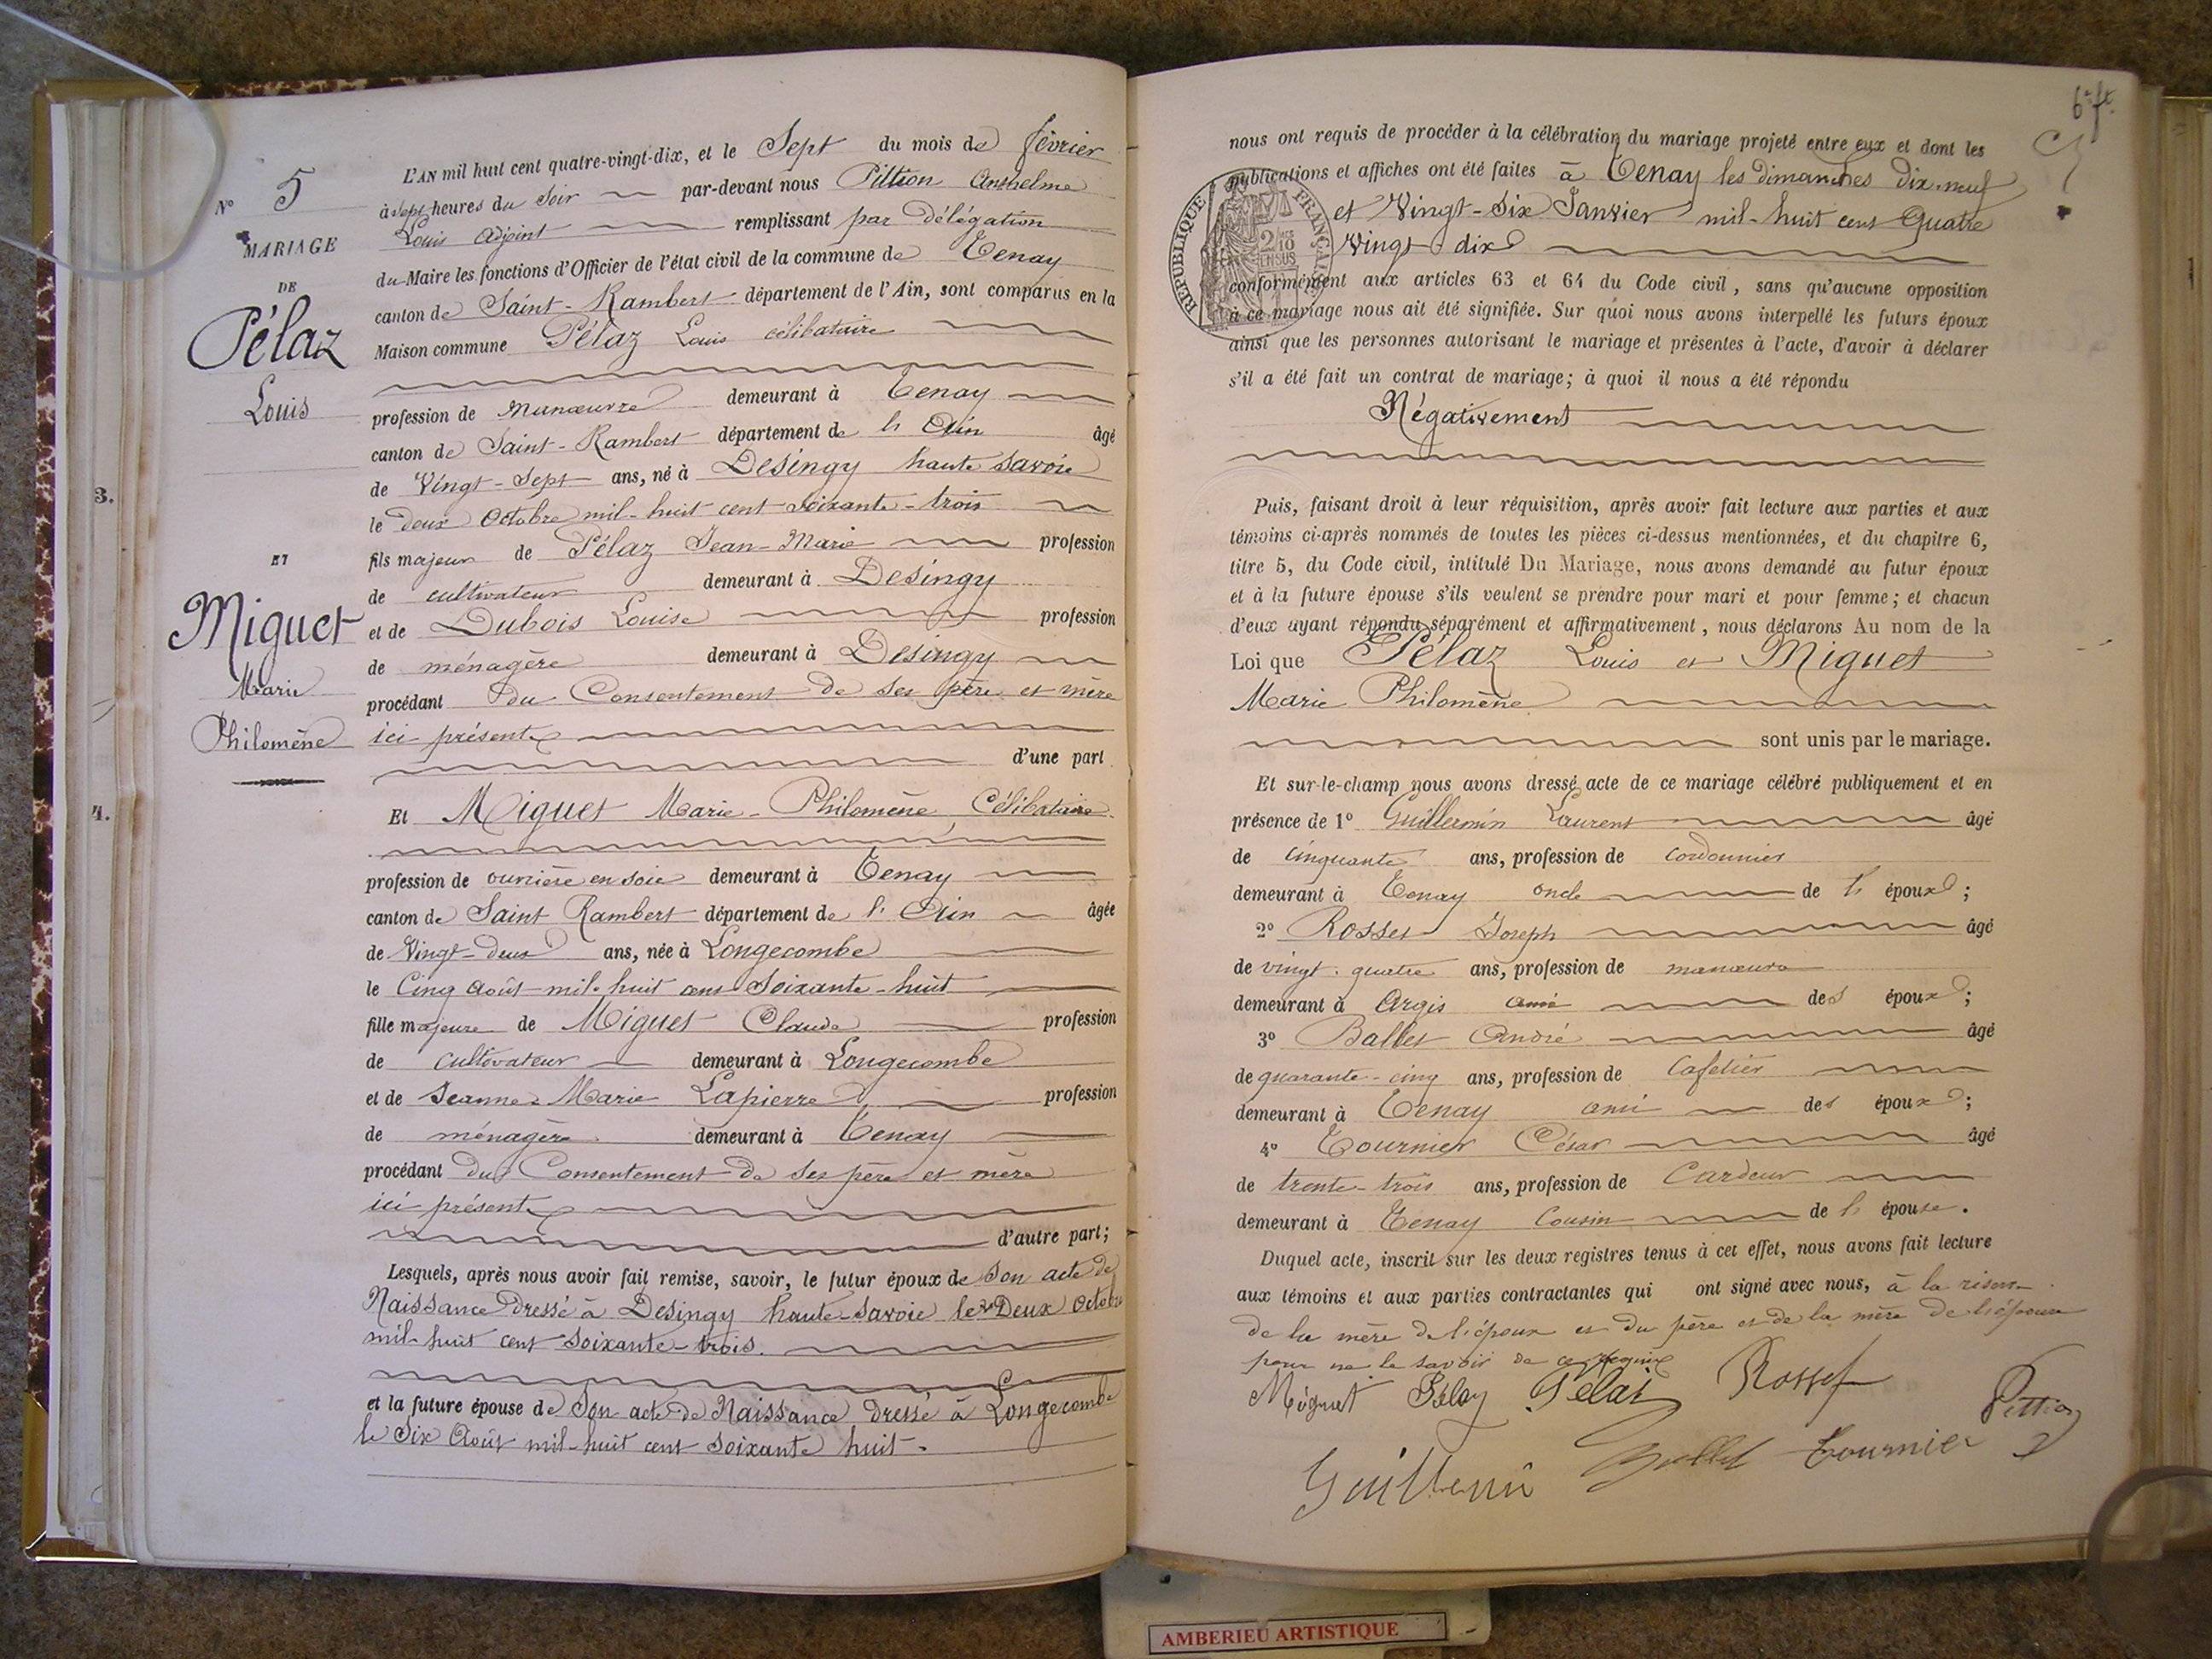 N° 5
MARIAGE
DE
Pélaz
Louis
3.
ET
Miguet
Marie
Philomène
4.
L'AN mil huit cent quatre-vingt-dix, et le Sept du mois de février
à sept heures du Soir par-devant nous Pittion Anthelme
Louis adjoint remplissant par délégation
du Maire les fonctions d'Officier de l'état civil de la commune de Tenay
canton de Saint-Rambert département de l'Ain, sont comparus en la
Maison commune Pélaz Louis célibataire
profession de manœuvre demeurant à Tenay
canton de Saint-Rambert département de l' Ain âgé
de Vingt-Sept ans, né à Desingy haute Savoie
le deux Octobre mil-huit cent Soixante-trois
fils majeur de Pélaz Jean-Marie profession
de cultivateur demeurant à Desingy
et de Dubois Louise profession
de ménagère demeurant à Desingy
procédant du Consentement de ses père et mère
ici présents
d'une part
Et Miguet Marie-Philomène, Célibataire
profession de ouvrière en soie demeurant à Tenay
canton de Saint Rambert département de l' Ain âgée
de Vingt-deux ans, née à Longecombe
le Cinq Août mil-huit cent Soixante-huit
fille majeure de Miguet Claude profession
de cultivateur demeurant à Longecombe
et de Jeanne-Marie Lapierre profession
de ménagère demeurant à Tenay
procédant du Consentement de ses père et mère
ici présents
d'autre part;
Lesquels, après nous avoir fait remise, savoir, le futur époux de Son acte de
Naissance Dressé à Desingy haute-savoie le Deux Octobre
mil-huit cent Soixante-trois.
et la future épouse de Son acte de Naissance dressé à Longecombe
le Six Août mil-huit cent Soixante huit.
6e ft.
nous ont requis de procéder à la célébration du mariage projeté entre eux et dont les
publications et affiches ont été faites à Tenay les dimanches dix-neuf
et Vingt-Six Janvier mil-huit cent Quatre
Vingt-dix
RÉPUBLIQUE FRANÇAISE
2/10 EN SUS
conformément aux articles 63 et 64 du Code civil, sans qu'aucune opposition
à ce mariage nous ait été signifiée. Sur quoi nous avons interpellé les futurs époux
ainsi que les personnes autorisant le mariage et présentes à l'acte, d'avoir à déclarer
s'il a été fait un contrat de mariage; à quoi il nous a été répondu
Négativement
Puis, faisant droit à leur réquisition, après avoir fait lecture aux parties et aux
témoins ci-après nommés de toutes les pièces ci-dessus mentionnées, et du chapitre 6,
titre 5, du Code civil, intitulé Du Mariage, nous avons demandé au futur époux
et à la future épouse s'ils veulent se prendre pour mari et pour femme; et chacun
d'eux ayant répondu séparément et affirmativement, nous déclarons Au nom de la
Loi que Pélaz Louis et Miguet
Marie Philomène
sont unis par le mariage.
Et sur-le-champ nous avons dressé acte de ce mariage célébré publiquement et en
présence de 1° Guillermin Laurent âgé
de cinquante ans, profession de cordonnier
demeurant à Tenay oncle de l' époux;
2° Rosset Joseph âgé
de vingt-quatre ans, profession de manœuvre
demeurant à Argis ami des époux;
3° Ballet André âgé
de quarante-cinq ans, profession de Cafetier
demeurant à Tenay ami des époux;
4° Tournier César âgé
de trente-trois ans, profession de Cardeur
demeurant à Tenay Cousin de l' épouse.
Duquel acte, inscrit sur les deux registres tenus à cet effet, nous avons fait lecture
aux témoins et aux parties contractantes qui ont signé avec nous, à la réserve
de la mère de l'époux et du père et de la mère de l'épouse
pour ne le savoir de ce requis
Miguet Pelaz Rosset
Guillermin Ballet Tournier Pittion
AMBERIEU ARTISTIQUE